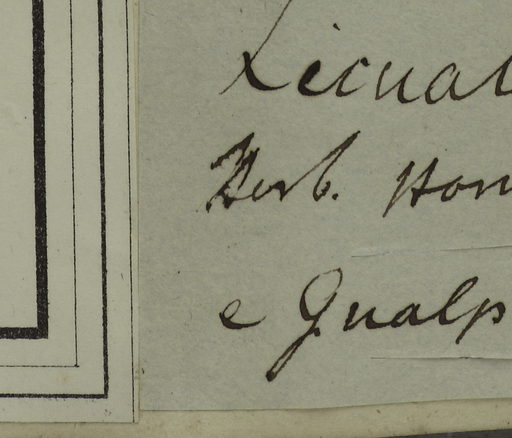 Licual
Herb. Hon
e Gualp